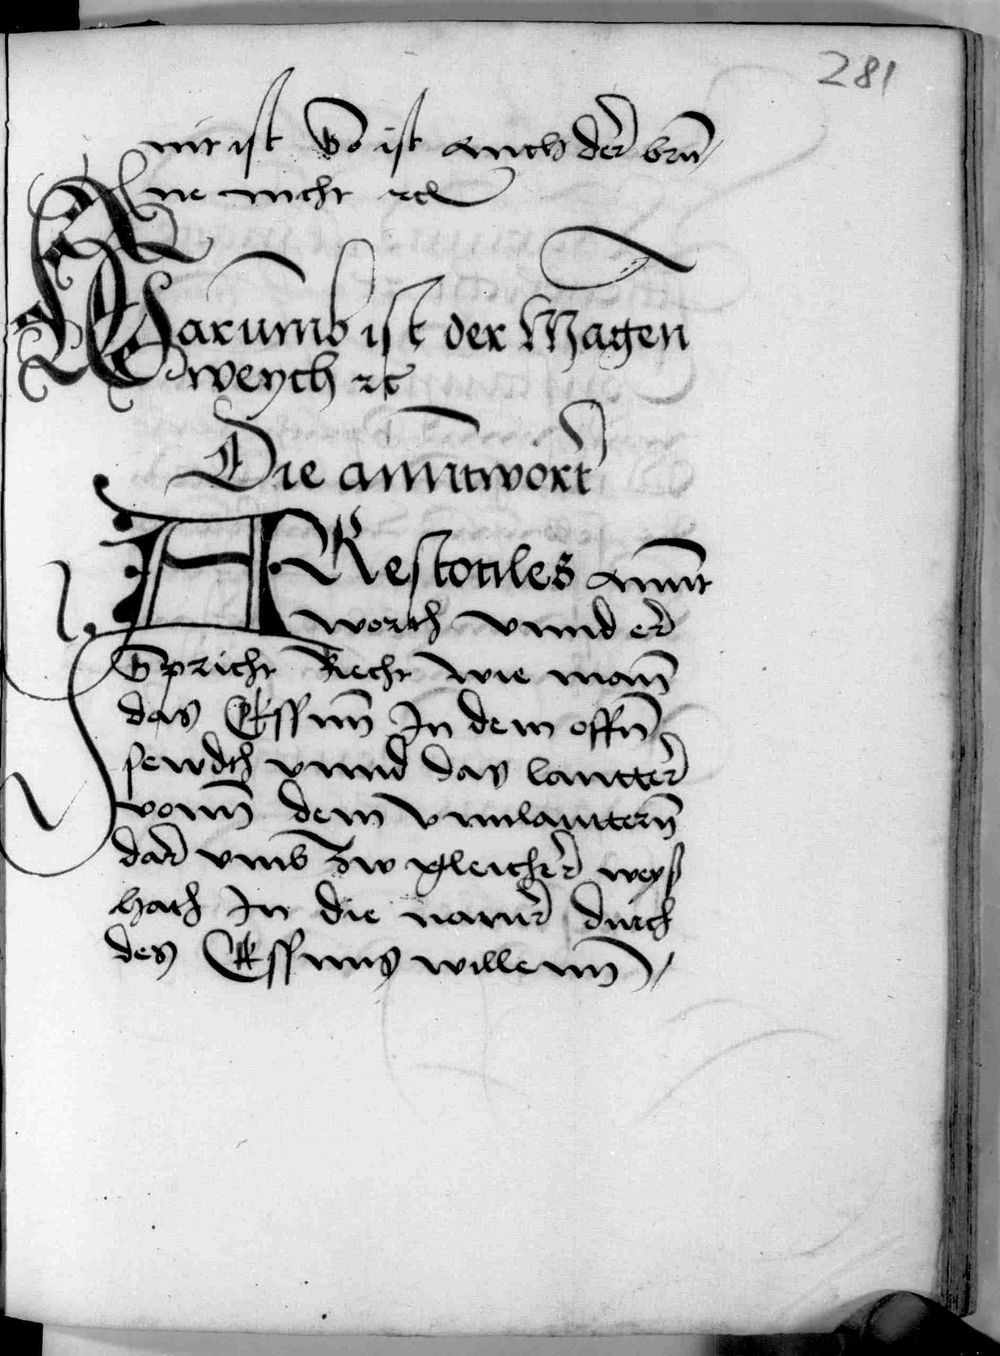 281
nit ist So ist auch der brũ
ne nicht ꝛc
Warumb ist der Magen
weych ꝛc
Die anntwort
ARestotiles annt
wortt vnnd er
Spricht Recht wie man̄
das Essnn̄ In dem offn̄
sewdtt vnnd das lautter
vonn̄ dem vnnlauttern̄
dar vmb zw gleicher weyß
hatt In die natur durch
des Essnns willenn̄